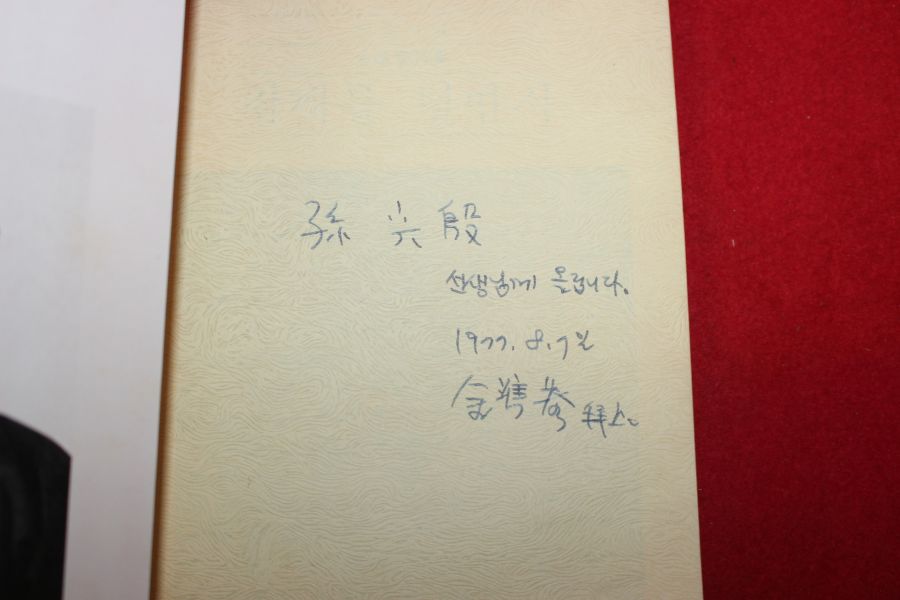 孫 兴 殷
선생님께 올립니다.
1977. 8. 7일
金 拜上